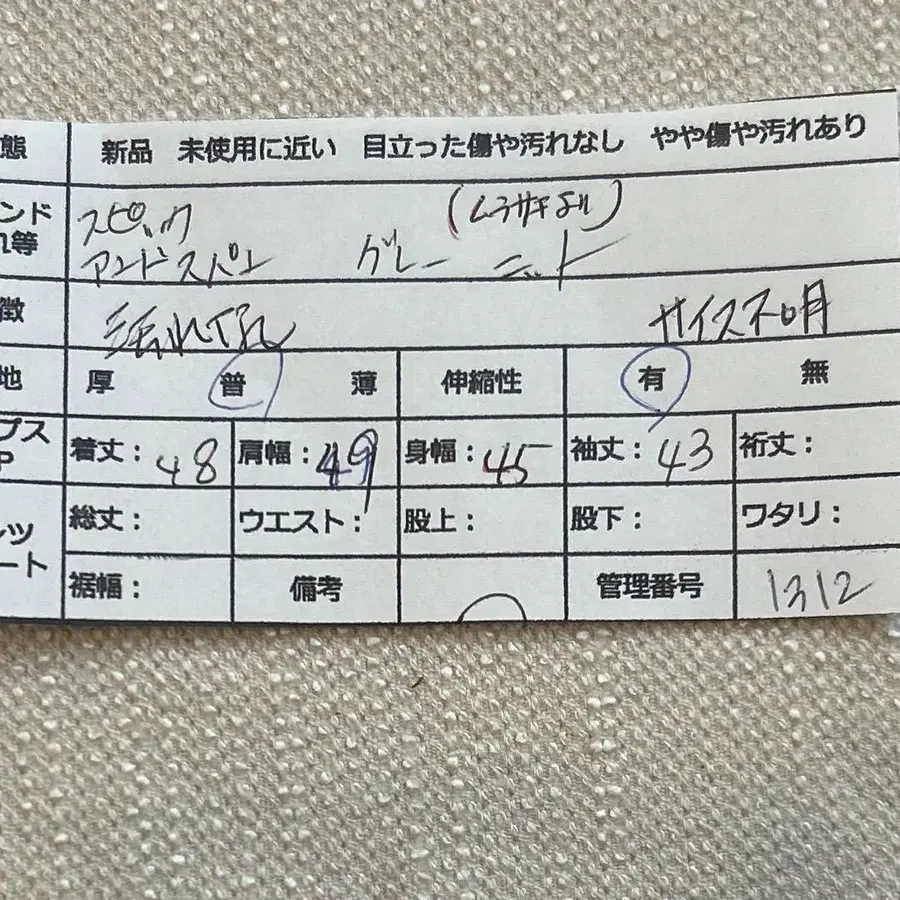 態 新品 未使用に近い 目立った傷や汚れなし やや傷や汚れあり
ンド スピック (ムラサキより)
れ等 アンドスパン グレー ニット
徴 サイズ不明
地 厚 普 薄 伸縮性 有 無
プス 着丈: 48 肩幅: 49 身幅: 45 袖丈: 43 裄丈:
P
ンツ 総丈: ウエスト: 股上: 股下: ワタリ:
ート 裾幅: 備考 管理番号 1312